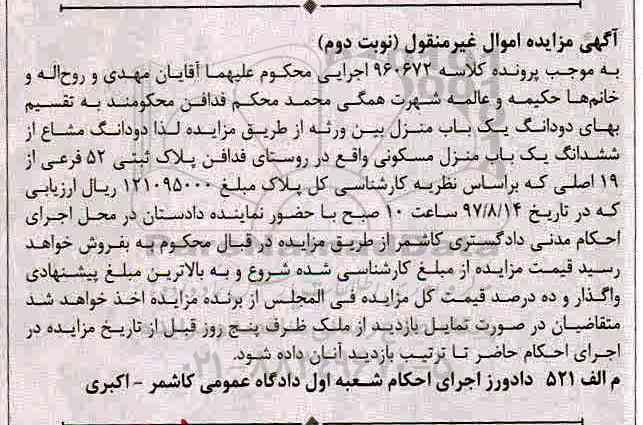 آگهی مزایده اموال غیرمنقول (نوبت دوم)
به موجب پرونده کلاسه ۹۶۰۶۷۲ اجرایی محکوم علیهما آقایان مهدی و روح‌اله و
خانم‌ها حکیمه و عالمه شهرت همگی محمد محکم فدافن محکومند به تقسیم
بهای دودانگ یک باب منزل بین ورثه از طریق مزایده لذا دودانگ مشاع از
ششدانگ یک باب منزل مسکونی واقع در روستای فدافن پلاک ثبتی ۵۲ فرعی از
۱۹ اصلی که براساس نظریه کارشناسی کل پلاک مبلغ ۱۲۱۰۹۵۰۰۰ ریال ارزیابی
که در تاریخ ۹۷/۸/۱۴ ساعت ۱۰ صبح با حضور نماینده دادستان در محل اجرای
احکام مدنی دادگستری کاشمر از طریق مزایده در قبال محکوم به بفروش خواهد
رسید قیمت مزایده از مبلغ کارشناسی شده شروع و به بالاترین مبلغ پیشنهادی
واگذار و ده درصد قیمت کل مزایده فی المجلس از برنده مزایده اخذ خواهد شد
متقاضیان در صورت تمایل بازدید از ملک ظرف پنج روز قبل از تاریخ مزایده در
اجرای احکام حاضر تا ترتیب بازدید آنان داده شود.
م الف ۵۲۱ دادورز اجرای احکام شعبه اول دادگاه عمومی کاشمر - اکبری